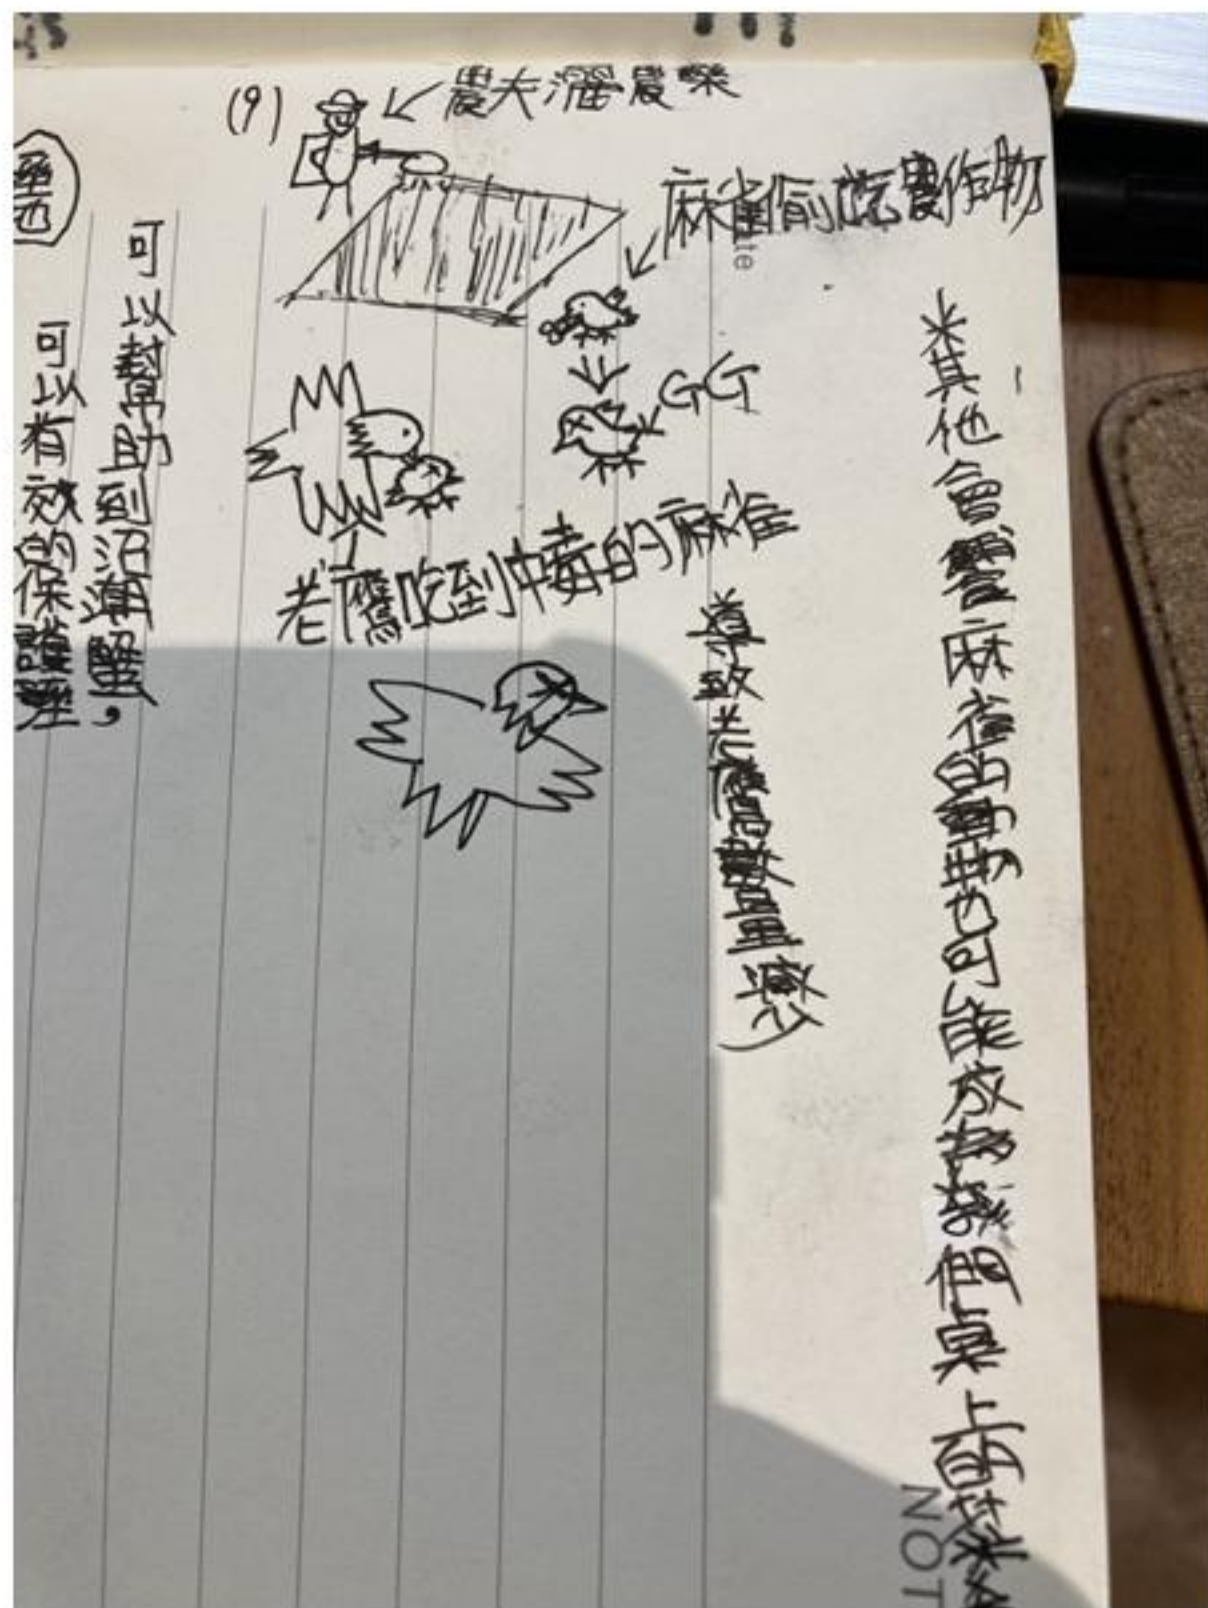 (9)
農夫灑農藥
麻雀偷吃農作物
GG
老鷹吃到中毒的麻雀
導致老鷹數量減少
※其他會吃麻雀的動物也可能成為我們桌上的菜
可以幫助到沼潮蟹，
可以有效的保護
te
NOT